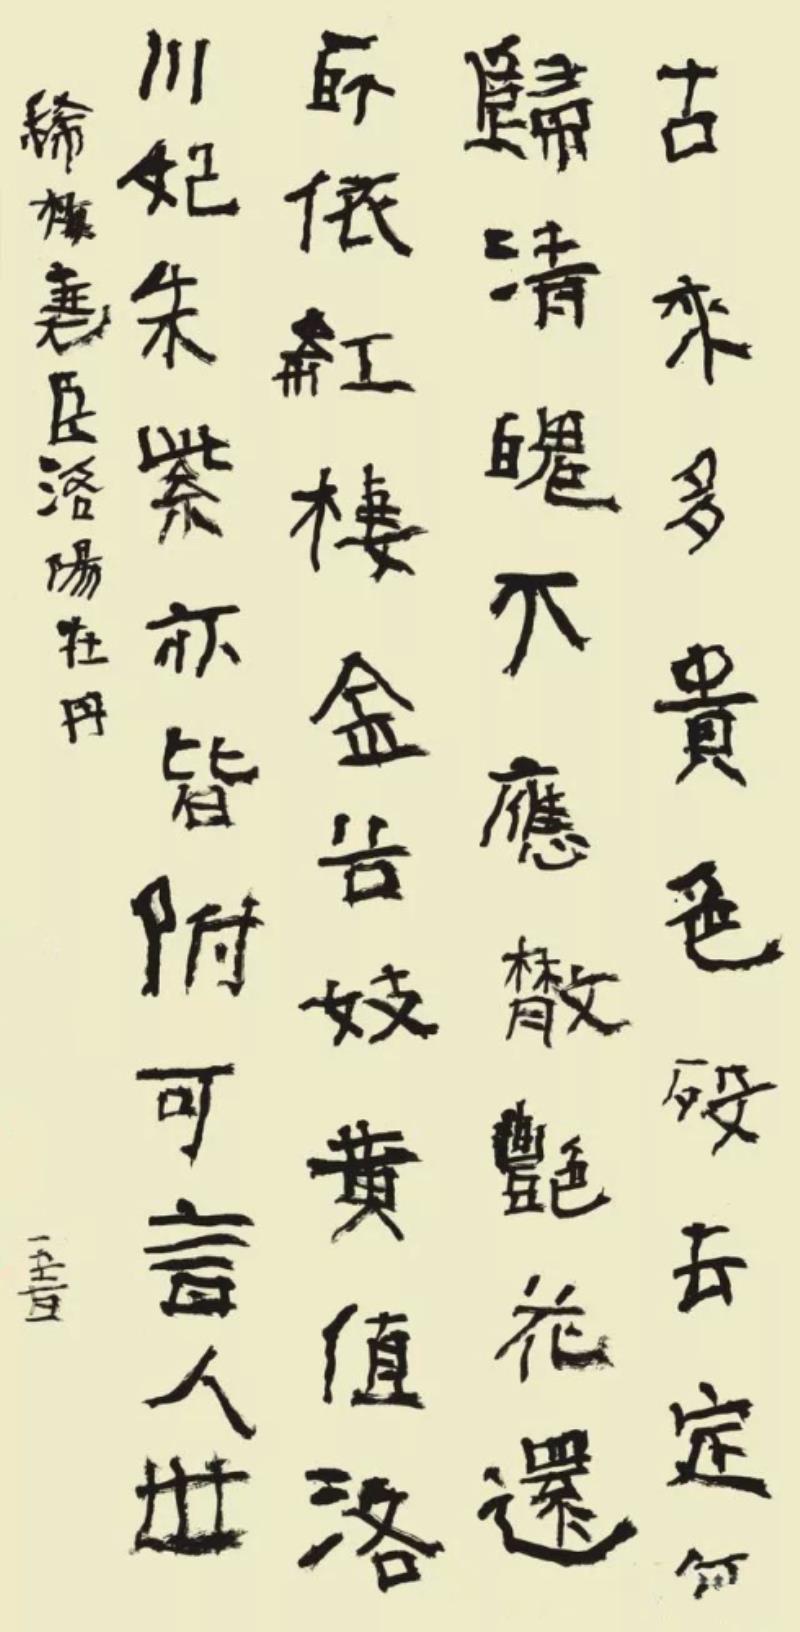 古來多貴色歿去定何
歸清魄不應散艷花還
所依紅棲金谷妓黄值洛
川妃朱紫亦皆附可言人世
稀 堯臣洛陽牡丹